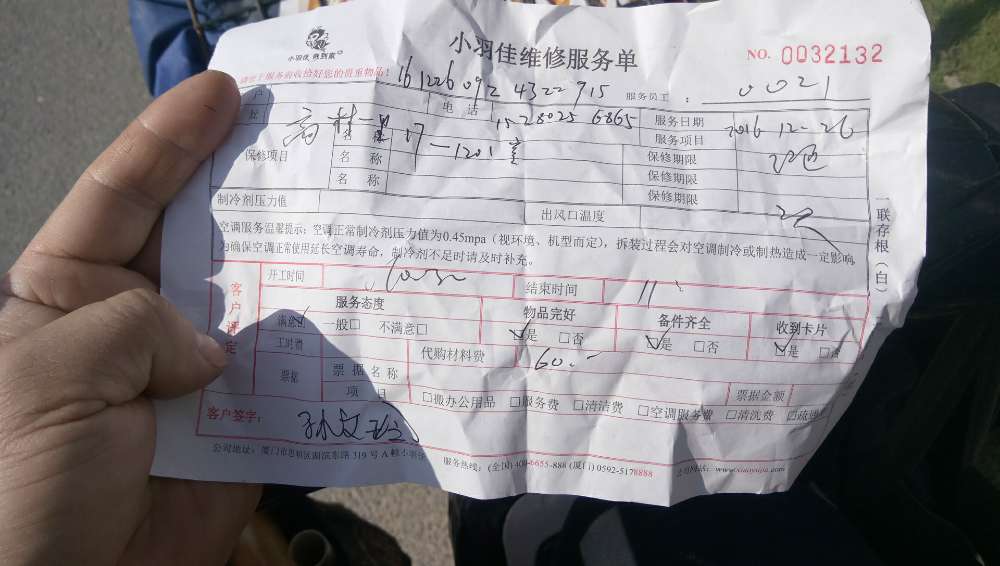 小羽佳 熱到家
小羽佳维修服务单
NO. 0032132
请您于服务前收给好您的贵重物品!
161226092 4322715
服务员工: 0021
户 电话 15280256865 服务日期 2016 12-26
名称 17-1201室 服务项目
保修项目 名称 保修期限
名称 保修期限
保修期限
制冷剂压力值 出风口温度
空调服务温馨提示:空调正常制冷剂压力值为0.45mpa(视环境、机型而定),拆装过程会对空调制冷或制热造成一定影响,
为确保空调正常使用延长空调寿命,制冷剂不足时请及时补充。
一联存根(白)
客户评定
开工时间 结束时间 11
服务态度 物品完好 备件齐全 收到卡片
满意☑ 一般□ 不满意□ ☑是 □否 ☑是 □否 ☑是 □否
工时费 代购材料费 60.-
票据 票据名称 票据金额
项目 □搬办公用品 □服务费 □清洁费 □空调服务费 □清洗费
客户签字:
公司地址:厦门市思明区湖滨东路319号A幢小羽佳
服务热线:(全国)400-6655-888(厦门)0592-5178888
公司网站:www.xiaoyujia.com